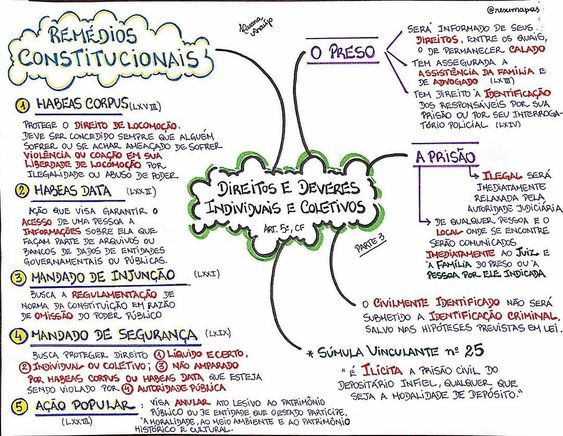 @resumapas
REMÉDIOS
CONSTITUCIONAIS
1 HABEAS CORPUS (LXVIII)
PROTEGE O DIREITO DE LOCOMOÇÃO.
DEVE SER CONCEDIDO SEMPRE QUE ALGUÉM
SOFRER OU SE ACHAR AMEAÇADO DE SOFRER
VIOLÊNCIA OU COAÇÃO EM SUA
LIBERDADE DE LOCOMOÇÃO POR
ILEGALIDADE OU ABUSO DE PODER.
2 HABEAS DATA (LXXII)
AÇÃO QUE VISA GARANTIR O
ACESSO DE UMA PESSOA A
INFORMAÇÕES SOBRE ELA QUE
FAÇAM PARTE DE ARQUIVOS OU
BANCOS DE DADOS DE ENTIDADES
GOVERNAMENTAIS OU PÚBLICAS.
3 MANDADO DE INJUNÇÃO (LXXI)
BUSCA A REGULAMENTAÇÃO DE
NORMA DA CONSTITUIÇÃO EM RAZÃO
DE OMISSÃO DO PODER PÚBLICO
4 MANDADO DE SEGURANÇA (LXIX)
BUSCA PROTEGER DIREITO 1 LÍQUIDO E CERTO,
2 INDIVIDUAL OU COLETIVO; 3 NÃO AMPARADO
POR HABEAS CORPUS OU HABEAS DATA QUE ESTEJA
SENDO VIOLADO POR 4 AUTORIDADE PÚBLICA
5 AÇÃO POPULAR: VISA ANULAR ATO LESIVO AO PATRIMÔNIO
(LXXIII) PÚBLICO OU DE ENTIDADE QUE O ESTADO PARTICIPE,
À MORALIDADE, AO MEIO AMBIENTE E AO PATRIMÔNIO
HISTÓRICO E CULTURAL.
DIREITOS E DEVERES
INDIVIDUAIS E COLETIVOS
ART. 5º, CF
PARTE 3
O PRESO
SERÁ INFORMADO DE SEUS
DIREITOS, ENTRE OS QUAIS,
O DE PERMANECER CALADO
TEM ASSEGURADA A
ASSISTÊNCIA DA FAMÍLIA E
DE ADVOGADO (LXIII)
TEM DIREITO À IDENTIFICAÇÃO
DOS RESPONSÁVEIS POR SUA
PRISÃO OU POR SEU INTERROGA-
TÓRIO POLICIAL (LXIV)
A PRISÃO
ILEGAL SERÁ
IMEDIATAMENTE
RELAXADA PELA
AUTORIDADE JUDICIÁRIA
DE QUALQUER PESSOA E O
LOCAL ONDE SE ENCONTRE
SERÃO COMUNICADOS
IMEDIATAMENTE AO JUIZ E
À FAMÍLIA DO PRESO OU À
PESSOA POR ELE INDICADA
O CIVILMENTE IDENTIFICADO NÃO SERÁ
SUBMETIDO A IDENTIFICAÇÃO CRIMINAL,
SALVO NAS HIPÓTESES PREVISTAS EM LEI.
* SÚMULA VINCULANTE nº 25
"É ILÍCITA A PRISÃO CIVIL DO
DEPOSITÁRIO INFIEL, QUALQUER QUE
SEJA A MODALIDADE DE DEPÓSITO."